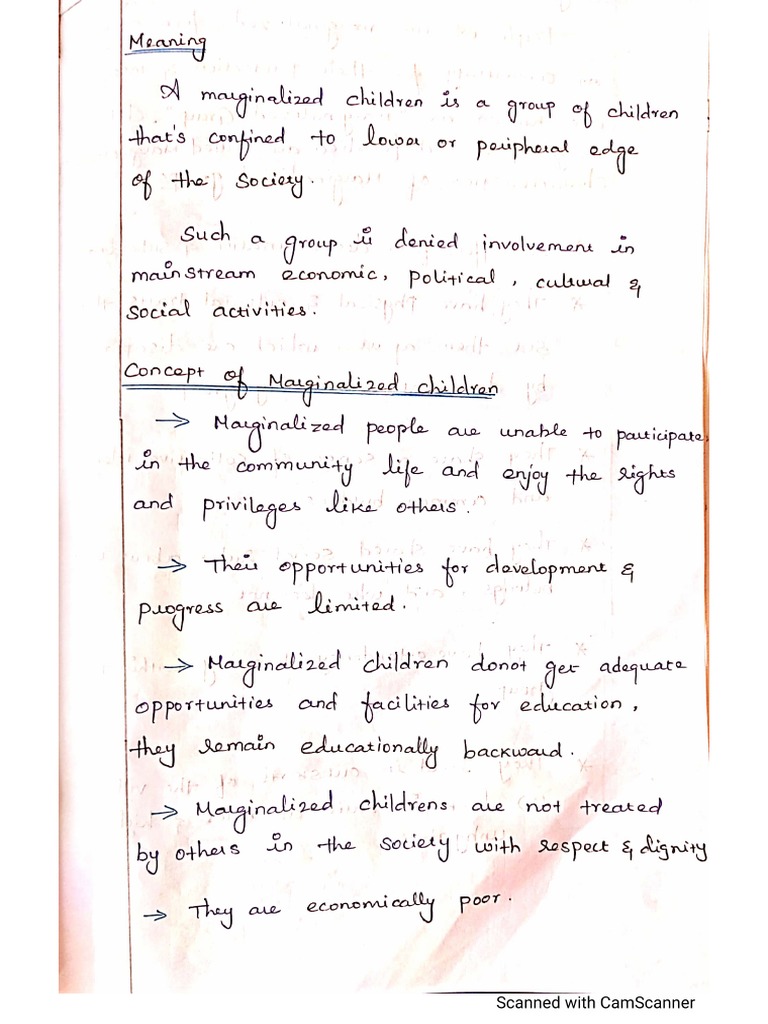 Meaning
A marginalized children is a group of children
that's confined to lower or peripheral edge
of the society.
Such a group is denied involvement in
mainstream economic, political, cultural &
social activities.
Concept of Marginalized children
→ Marginalized people are unable to participate
in the community life and enjoy the rights
and privileges like others.
→ Their opportunities for development &
progress are limited.
→ Marginalized children donot get adequate
opportunities and facilities for education,
they remain educationally backward.
→ Marginalized childrens are not treated
by others in the society with respect & dignity
→ They are economically poor.
Scanned with CamScanner